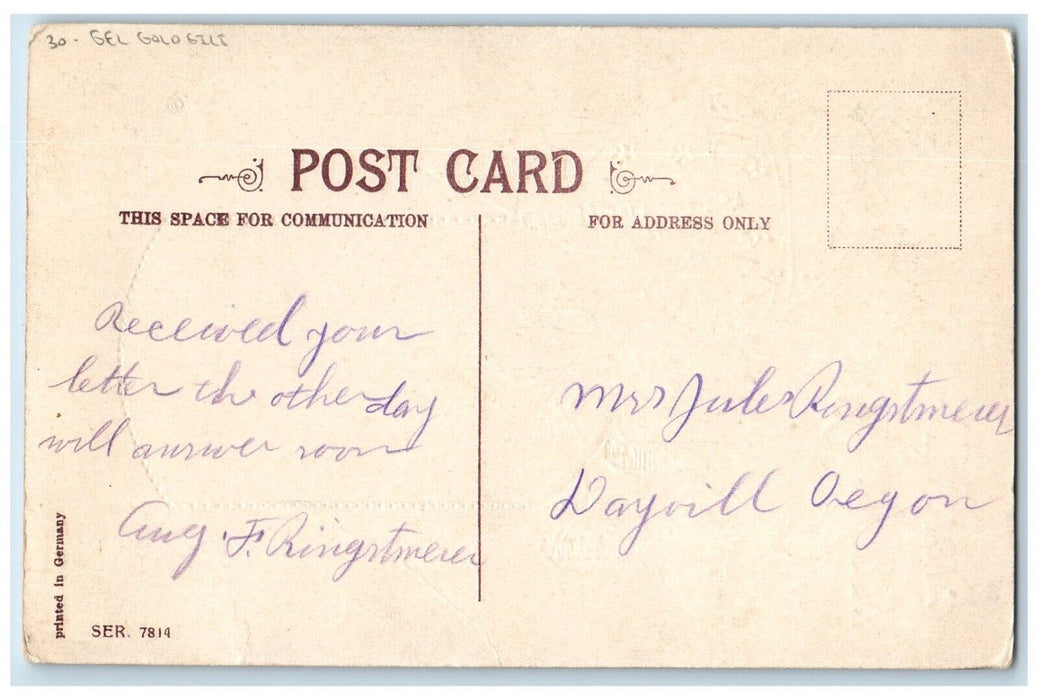 30 - GEL GOLD GILT
POST CARD
THIS SPACE FOR COMMUNICATION
FOR ADDRESS ONLY
Received your
letter the other day
will answer soon
Aug. F. Ringstmeier
Mrs Jules Ringstmeier
Dayvill Oregon
printed in Germany
SER. 7814